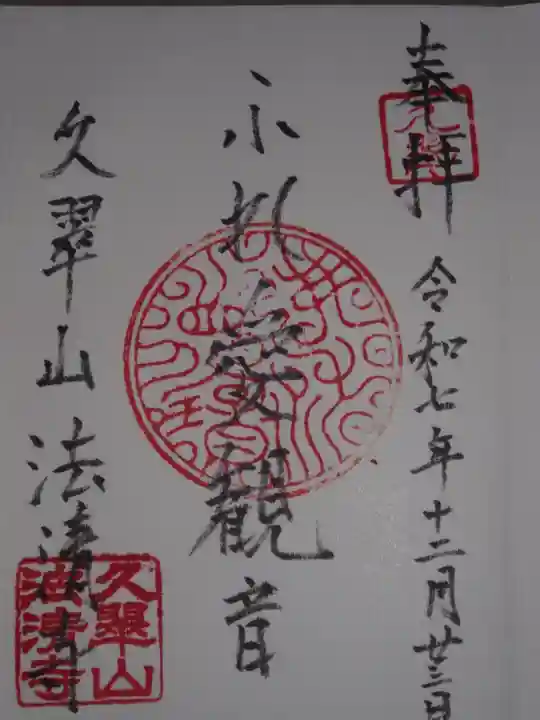 奉拝
令和七年十二月廿三日
小札愛観音
久翠山 法清寺
久翠山
法清寺